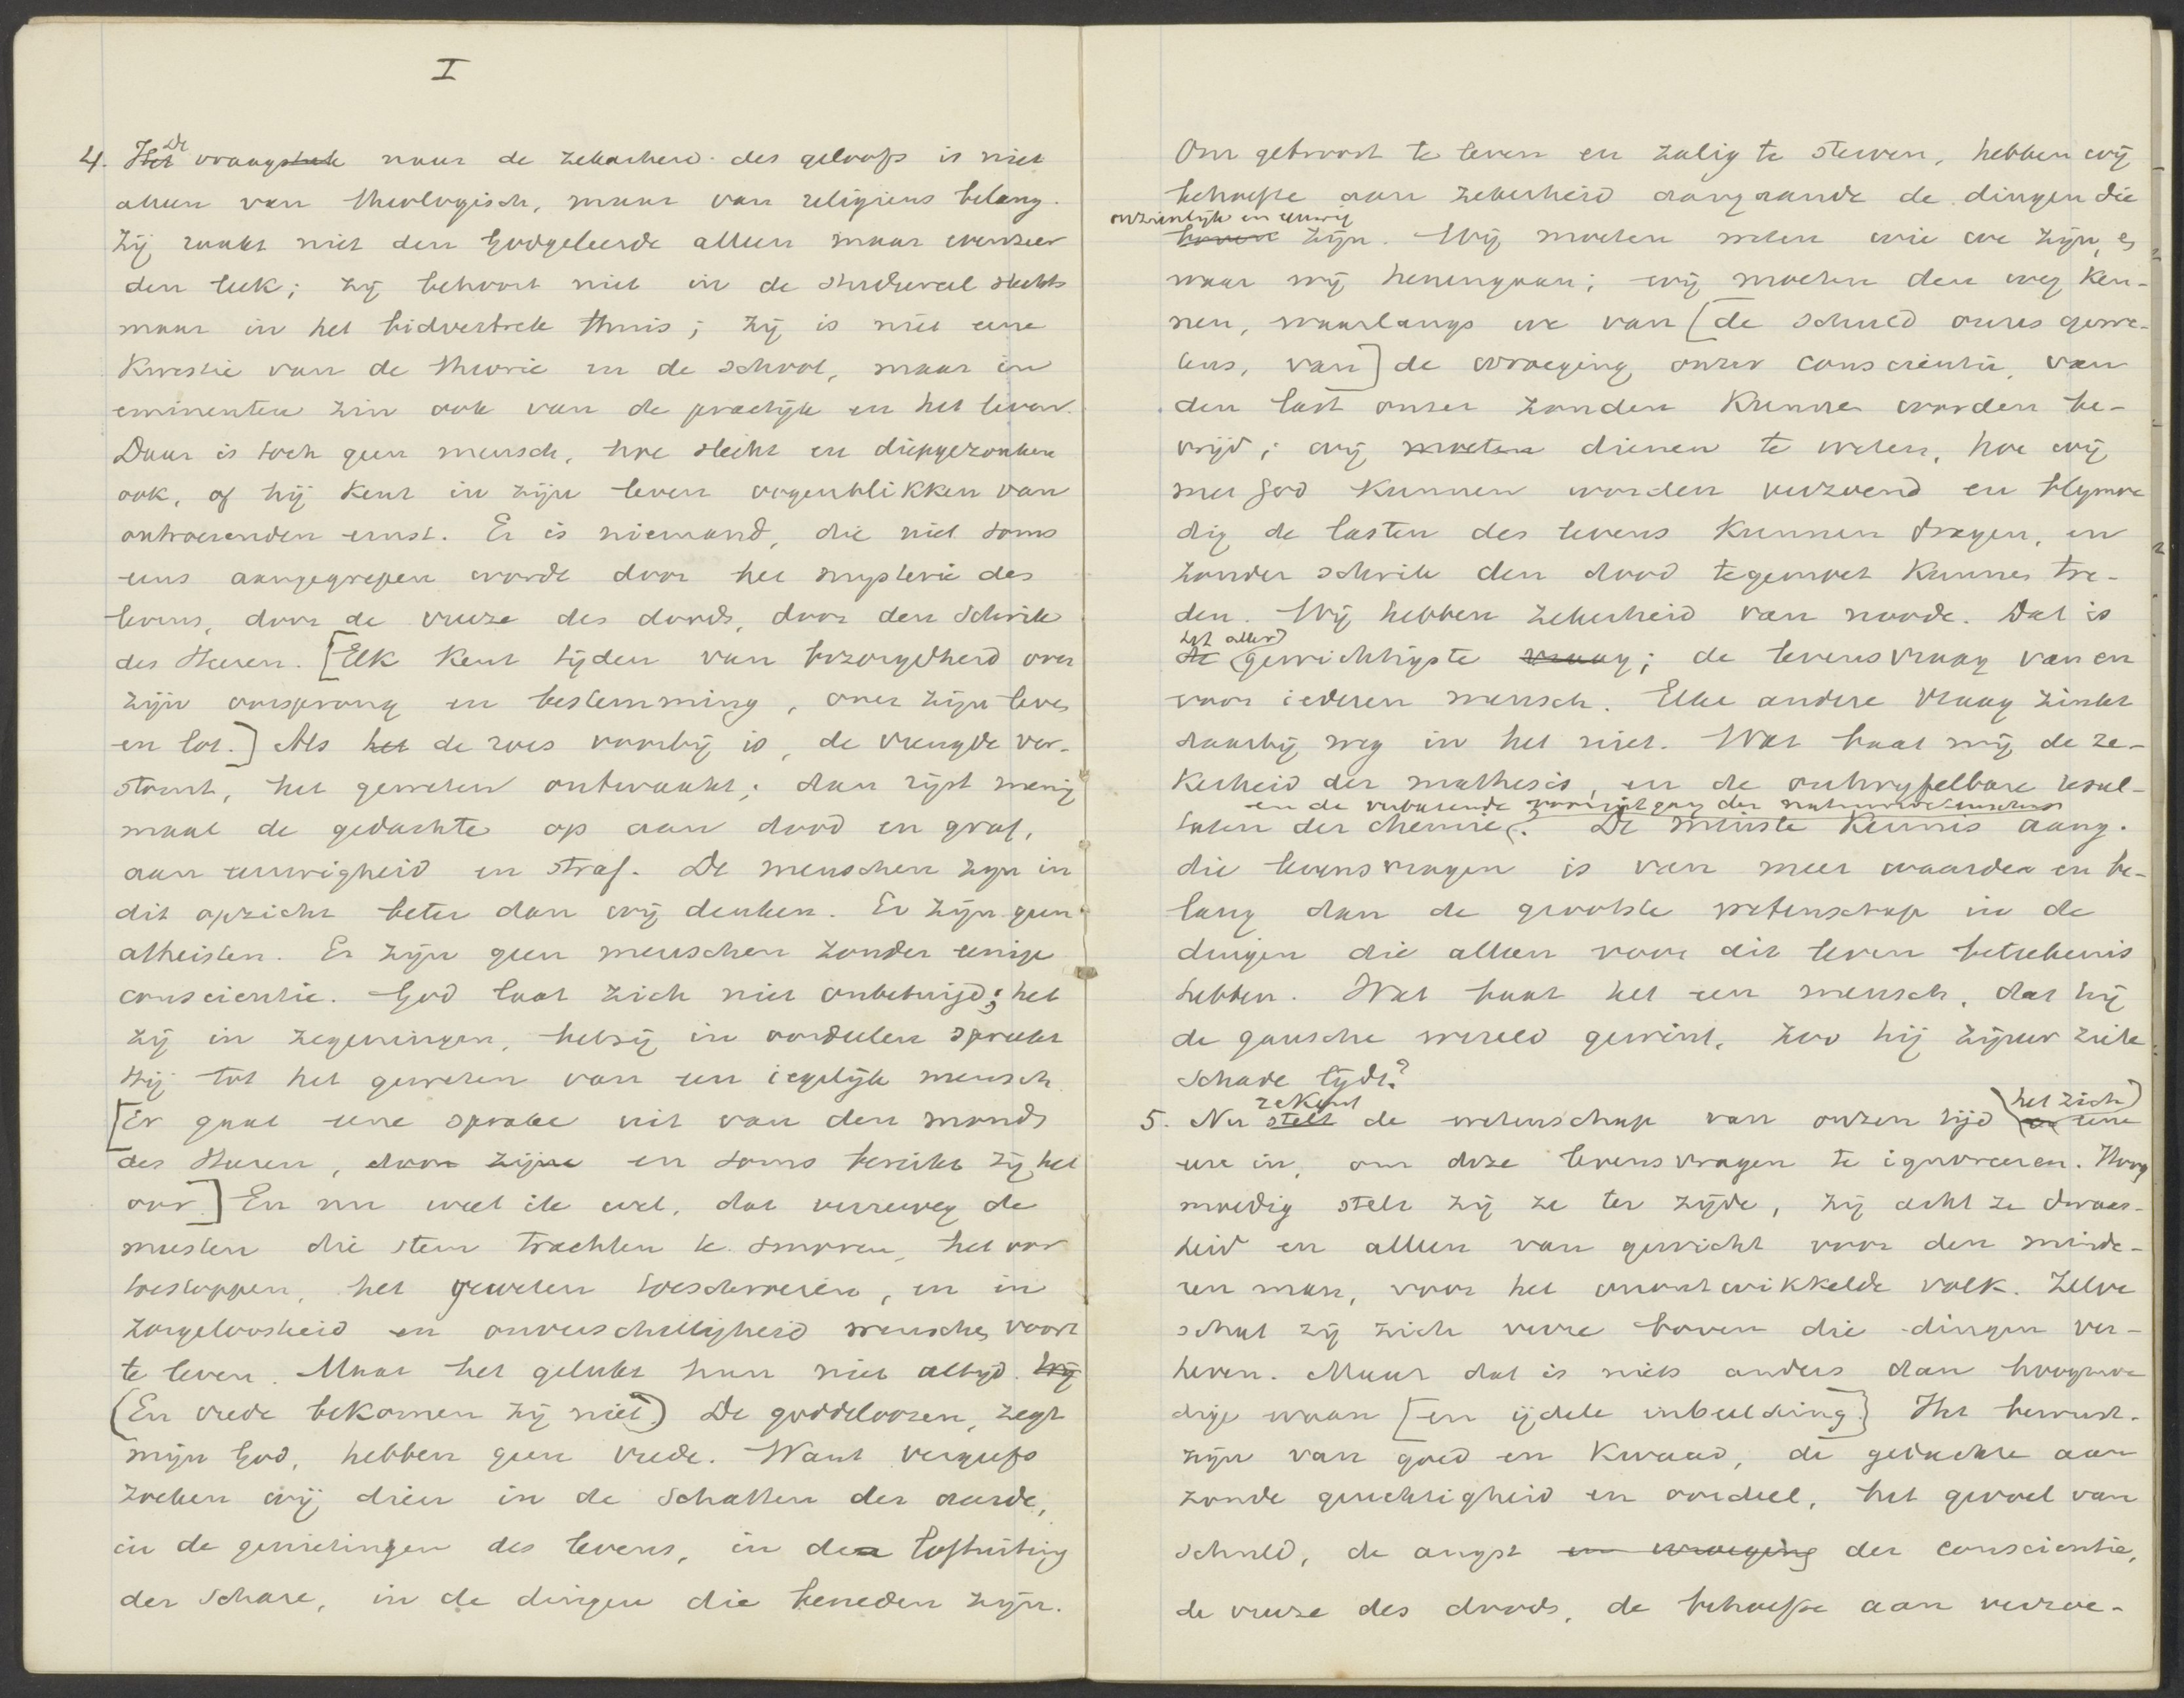 I
4. Het De vraagstuk naar de zekerheid des geloofs is niet
alleen van theologisch, maar van religieus belang.
Zij raakt niet den Godgeleerde alleen maar evenzeer
den leek; zij behoort niet in de studeercel slechts
maar in het bidvertrek thuis; zij is niet eene
kwestie van de theorie en de school, maar in
eminenten zin ook van de practijk en het leven.
Daar is toch geen mensch, hoe slecht en diepgezonken
ook, of hij kent in zijn leven oogenblikken van
ontroerenden ernst. Er is niemand, die niet soms
eens aangegrepen wordt door het mysterie des
levens, door de vreeze des doods, door den schrik
des Heeren. [Elk kent tijden van bezorgdheid over
zijn oorsprong en bestemming, over zijn leven
en lot.] Als het de roes voorbij is, de vreugde ver-
stomt, het geweten ontwaakt; dan rijst menig
maal de gedachte op aan dood en graf,
aan eeuwigheid en straf. De menschen zijn in
dit opzicht beter dan wij denken. Er zijn geen
atheisten. Er zijn geen menschen zonder eenige
conscientie. God laat zich niet onbetuigd; het
zij in zegeningen, hetzij in oordeelen spreekt
Hij tot het geweten van een iegelijk mensch
[Er gaat eene sprake uit van den mond
des Heeren, door zijne en soms bereikt zij het
oor.] En nu weet ik wel, dat verreweg de
meesten die stem trachten te smoren, het oor
toestoppen, het geweten toeschroeien, en in
zorgeloosheid en onverschilligheid wenschen voort
te leven. Maar het gelukt hun niet altijd. Wij
(En vrede bekomen zij niet.) De goddeloozen, zegt
mijn God, hebben geen vrede. Want vergeefs
zoeken wij dien in de schatten der aarde,
in de genietingen des levens, in de loftuiting
der schare, in de dingen die beneden zijn.
Om getroost te leven en zalig te sterven, hebben wij
behoefte aan zekerheid aangaande de dingen die
onzienlijk en eeuwig
boven zijn. Wij moeten weten wie we zijn, en
waar wij henengaan; wij moeten den weg ken-
nen, waarlangs we van [de schuld onzes gewe-
tens, van] de wroeging onzer conscientie, van
den last onzer zonden kunnen worden be-
vrijd; wij moeten dienen te weten, hoe wij
met God kunnen worden verzoend en blijmoe
dig de lasten des levens kunnen dragen, en
zonder schrik den dood tegemoet kunnen tre-
den. Wij hebben zekerheid van noode. Dat is
het aller
de gewichtigste vraag; de levensvraag van en
voor iederen mensch. Elke andere vraag zinkt
daarbij weg in het niet. Wat baat mij de ze-
kerheid der mathesis, en de ontwijfelbare resul-
en de verbazende vooruitgang der natuurwetenschappen
taten der chemie. De minste kennis aang.
die levensvragen is van meer waarde en be-
lang dan de grootste wetenschap in de
dingen die alleen voor dit leven beteekenis
hebben. Wat baat het een mensch, dat hij
de gansche wereld gewint, zoo hij zijner ziele
schade lijdt?
rekent het zich
5. Nu stelt de wetenschap van onzen tijd er eene
eere in, om deze levensvragen te ignoreeren. Hoog
moedig stelt zij ze ter zijde, zij acht ze dwaas-
heid en alleen van gewicht voor den minde-
ren man, voor het onontwikkelde volk. Zelve
schat zij zich verre boven die dingen ver-
heven. Maar dat is niets anders dan hoogmoe
dige waan [en ijdele inbeelding.] Het bewust-
zijn van goed en kwaad, de gedachte aan
zonde gerechtigheid en oordeel, het gevoel van
schuld, de angst en wroeging der conscientie,
de vreeze des doods, de behoefte aan verzoe-